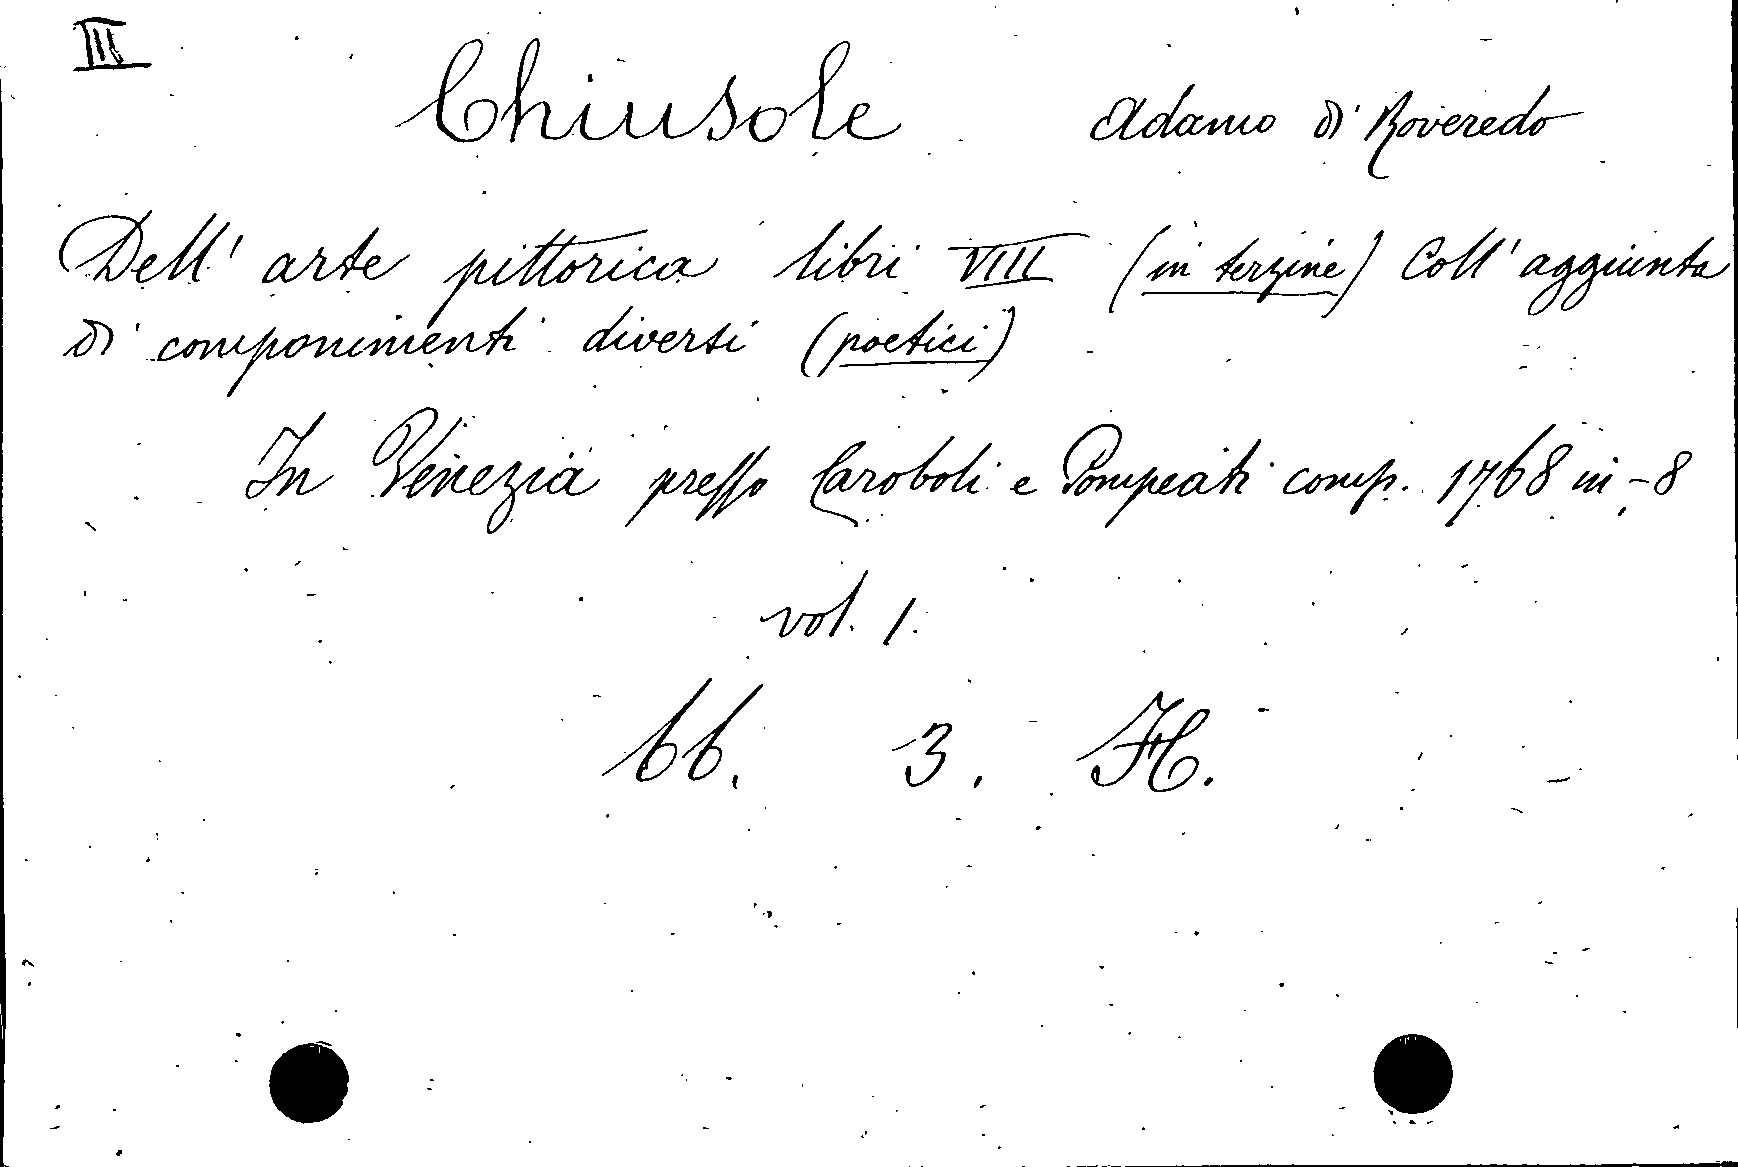 III
Chiusole Adamo di Roveredo
Dell' arte pittorica libri VIII (in terzine) Coll' aggiunta
di componimenti diversi (poetici)
In Venezia presso Caroboli e Pompeati comp. 1768 in-8
vol. 1.
bb. 3. H.